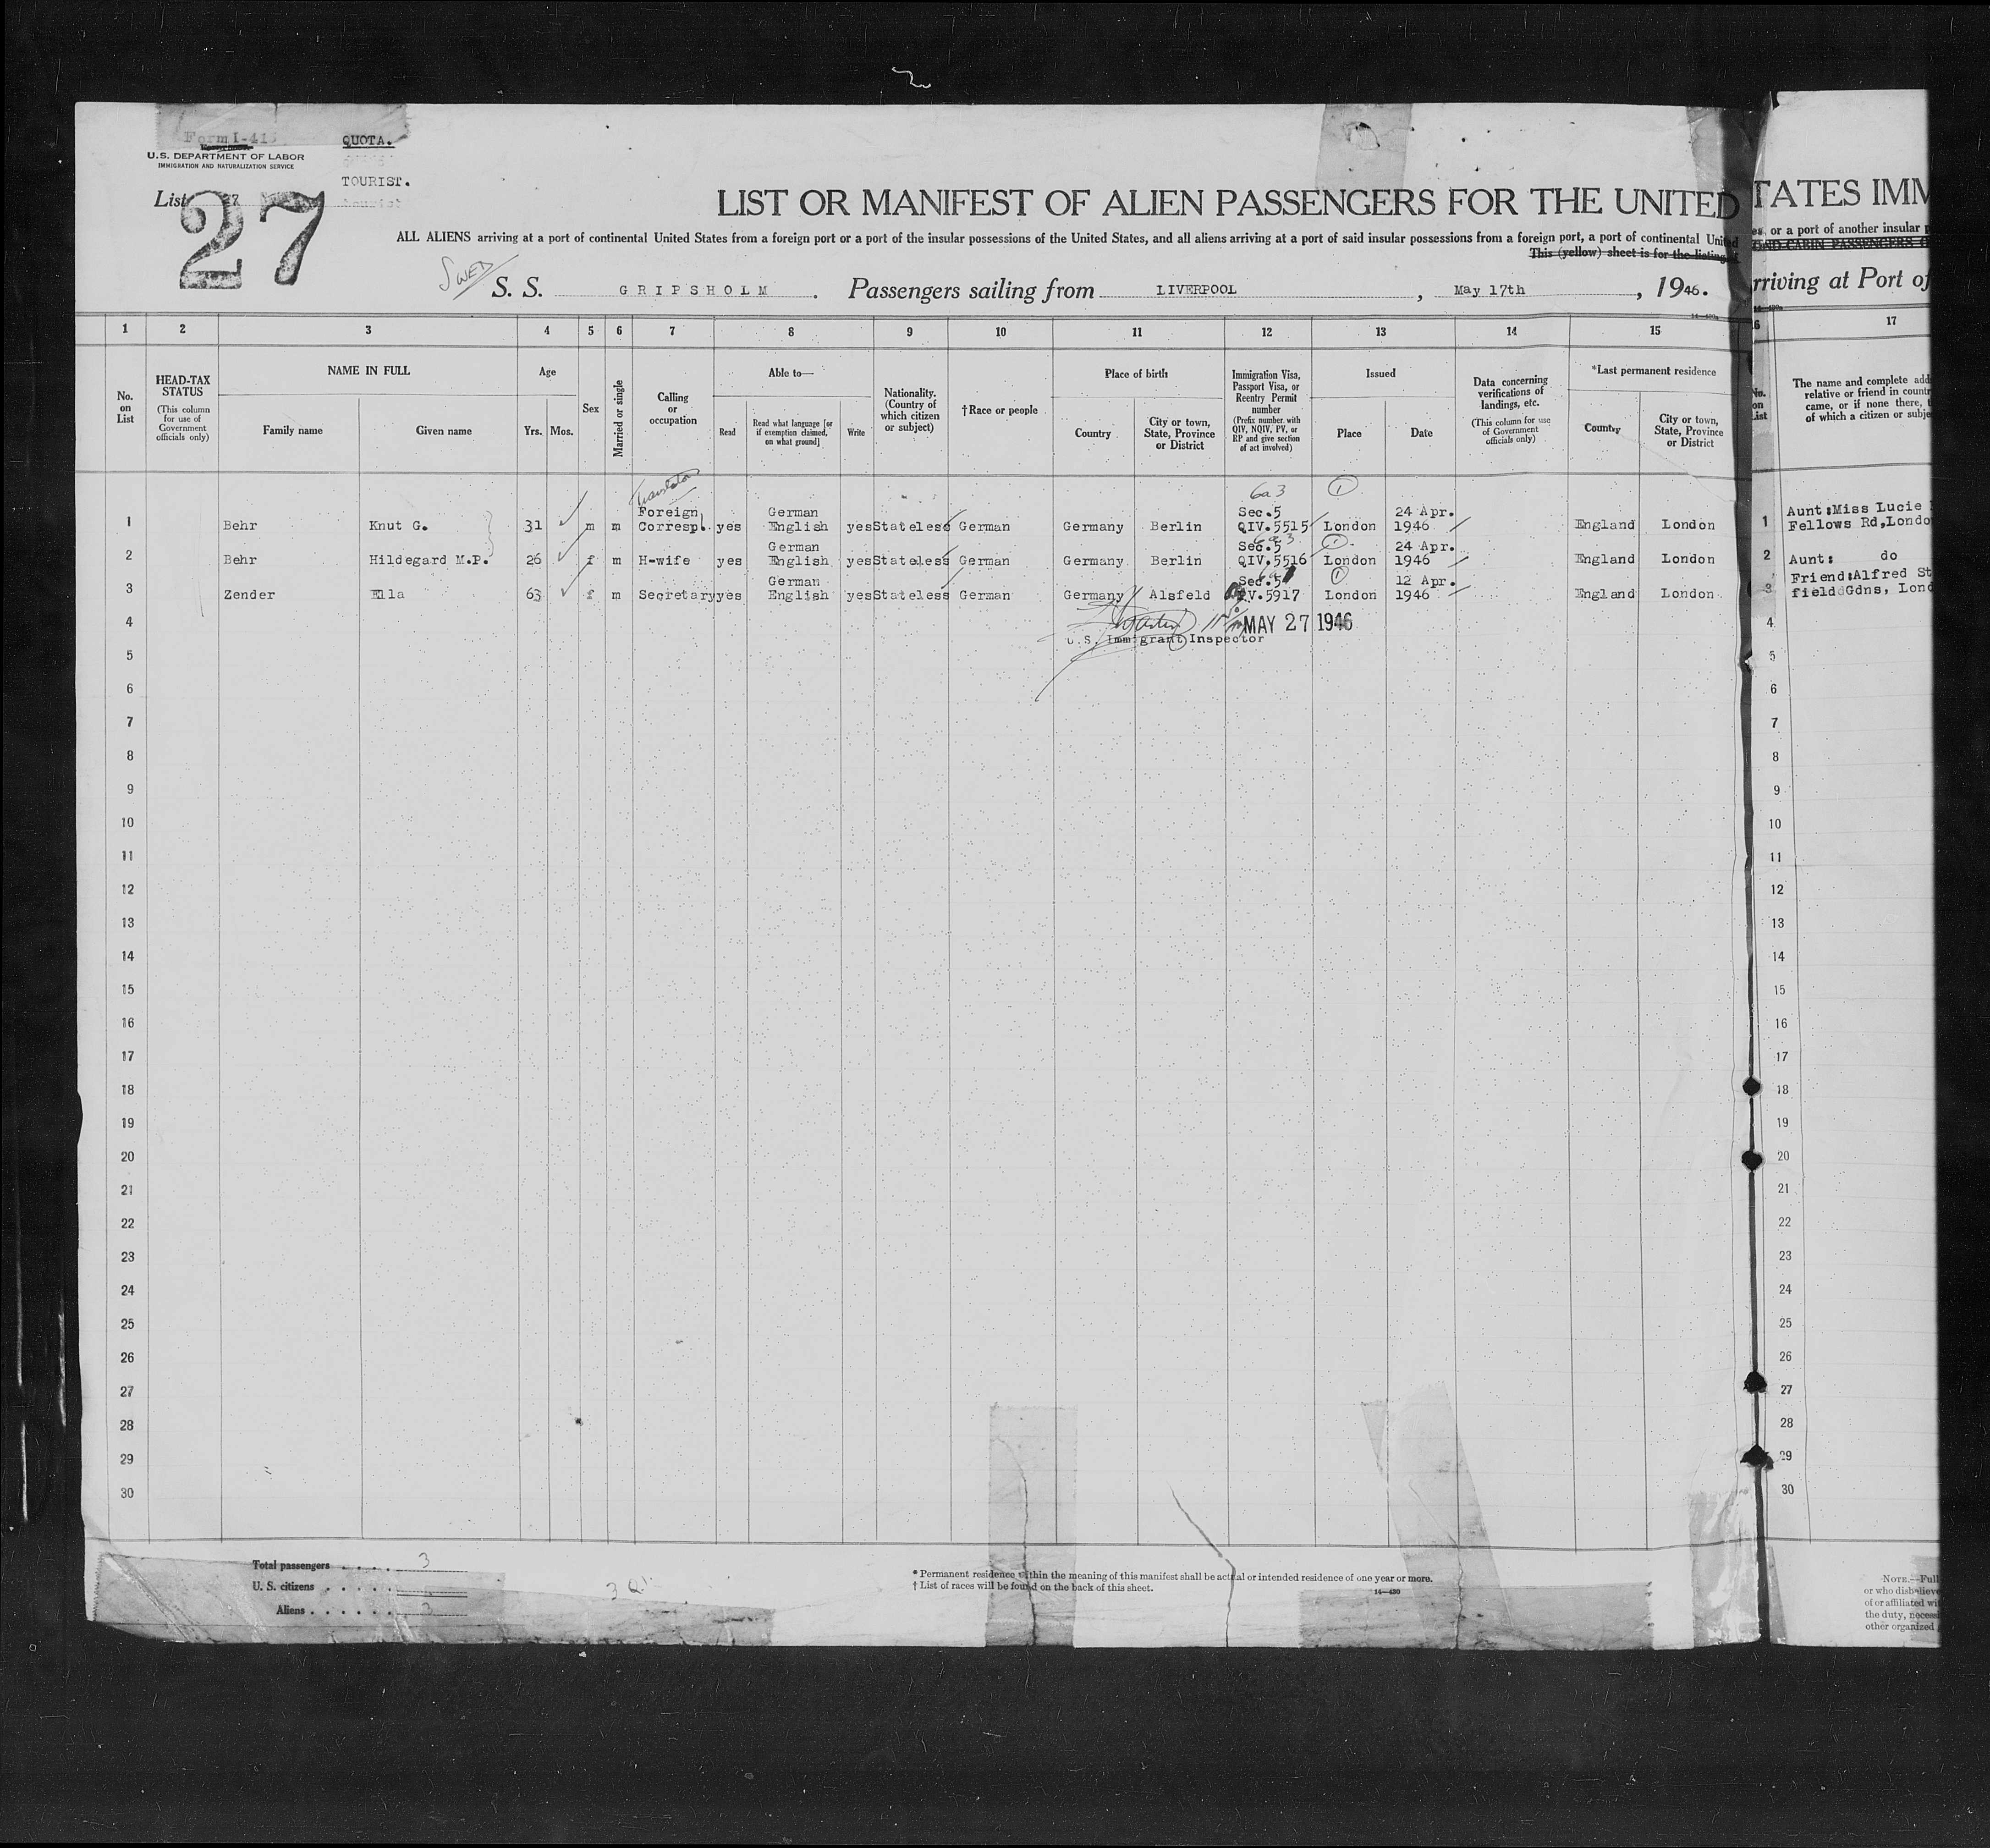 Form I-415
U.S. DEPARTMENT OF LABOR
IMMIGRATION AND NATURALIZATION SERVICE
QUOTA.
TOURIST.
tourist
List 27
27
LIST OR MANIFEST OF ALIEN PASSENGERS FOR THE UNITED
ALL ALIENS arriving at a port of continental United States from a foreign port or a port of the insular possessions of the United States, and all aliens arriving at a port of said insular possessions from a foreign port, a port of continental United
This (yellow) sheet is for the listing
Swed S. S. GRIPSHOLM . Passengers sailing from LIVERPOOL , May 17th , 1946.
1 2 3 4 5 6 7 8 9 10 11 12 13 14 15
No. on List
HEAD-TAX STATUS (This column for use of Government officials only)
NAME IN FULL
Family name Given name
Age
Yrs. Mos.
Sex
Married or single
Calling or occupation
Able to—
Read
Read what language [or if exemption claimed, on what ground]
Write
Nationality. (Country of which citizen or subject)
†Race or people
Place of birth
Country
City or town, State, Province or District
Immigration Visa, Passport Visa, or Reentry Permit number (Prefix number with QIV, NQIV, PV, or RP and give section of act involved)
Issued
Place Date
Data concerning verifications of landings, etc. (This column for use of Government officials only)
*Last permanent residence
Country
City or town, State, Province or District
Translator 6a3 1
Foreign German Sec.5 24 Apr.
1 Behr Knut G. 31 m m Corresp. yes English yes Stateless German Germany Berlin QIV.5515 London 1946 England London
German Sec.5 6a3 1 24 Apr.
2 Behr Hildegard M.P. 26 f m H-wife yes English yes Stateless German Germany Berlin QIV.5516 London 1946 England London
German Sec.5 1 12 Apr.
3 Zender Ella 63 f m Secretary yes English yes Stateless German Germany Alsfeld QIV.5917 London 1946 England London
4 MAY 27 1946
U.S. Immigrant Inspector
5
6
7
8
9
10
11
12
13
14
15
16
17
18
19
20
21
22
23
24
25
26
27
28
29
30
Total passengers . . . . . 3
U. S. citizens . . . . .
Aliens . . . . . . 3
* Permanent residence within the meaning of this manifest shall be actual or intended residence of one year or more.
† List of races will be found on the back of this sheet.
14—430
TATES IMM
es, or a port of another insular
rriving at Port of
17
No. on List
The name and complete add
relative or friend in countr
came, or if none there,
of which a citizen or subje
Aunt:Miss Lucie
1 Fellows Rd,Londo
2 Aunt: do
Friend:Alfred St
3 field Gdns, Lond
4
5
6
7
8
9
10
11
12
13
14
15
16
17
18
19
20
21
22
23
24
25
26
27
28
29
30
NOTE.—Full
or who disbelieve
of or affiliated wi
the duty, necess
other organized